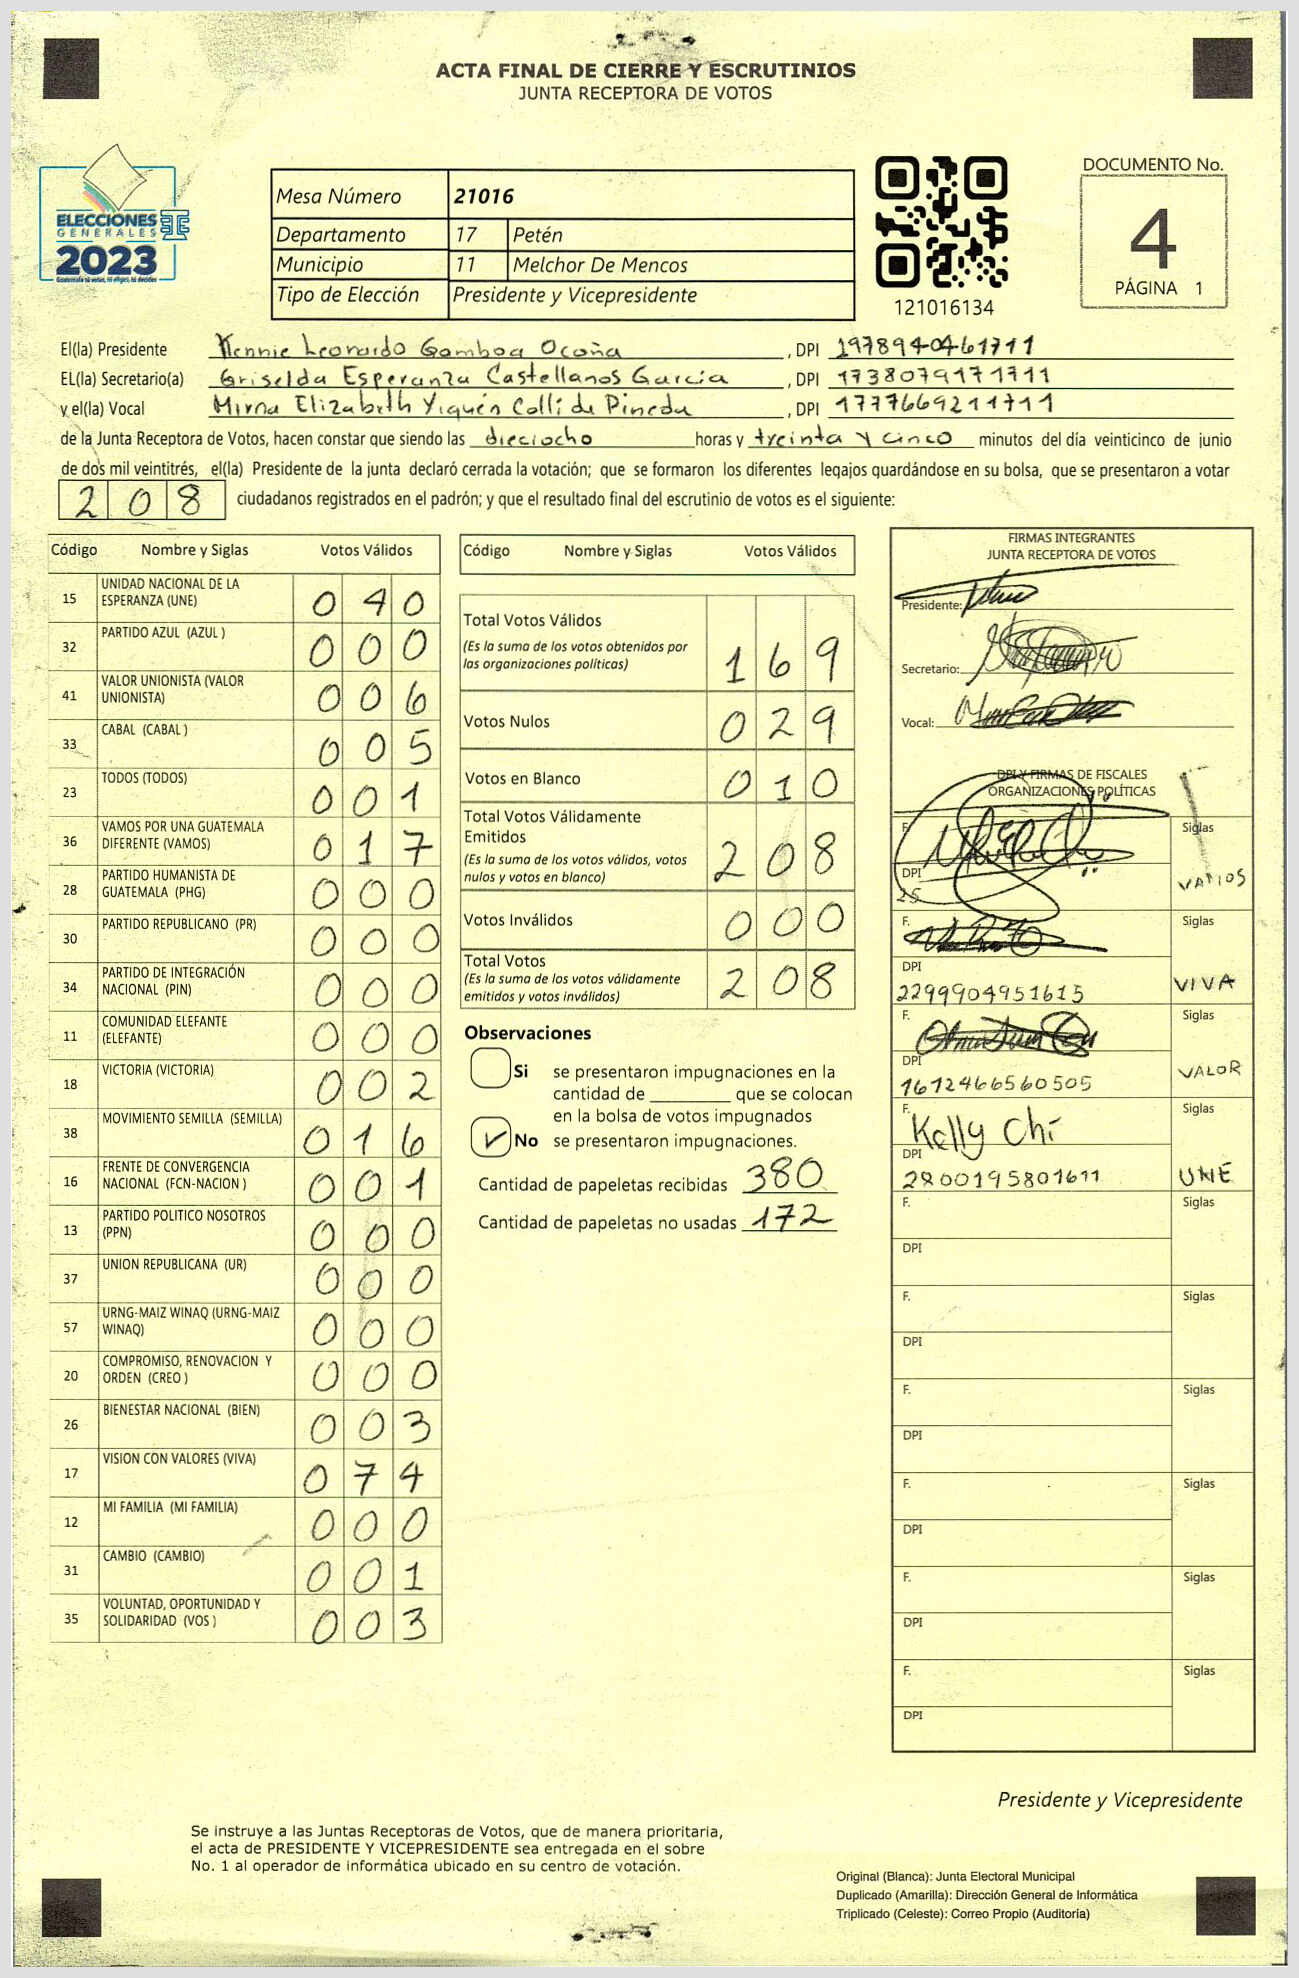 ACTA FINAL DE CIERRE Y ESCRUTINIOS
JUNTA RECEPTORA DE VOTOS
ELECCIONES
GENERALES
2023
Mesa Número 21016
Departamento 17 Petén
Municipio 11 Melchor De Mencos
Tipo de Elección Presidente y Vicepresidente
121016134
DOCUMENTO No.
4
PÁGINA 1
El(la) Presidente Kennie Leonardo Gamboa Ocaña, DPI 1978940461711
EL(la) Secretario(a) Griselda Esperanza Castellanos García, DPI 1738079171711
y el(la) Vocal Mirna Elizabeth Yiquén Collí de Pineda, DPI 1777669211711
de la Junta Receptora de Votos, hacen constar que siendo las dieciocho horas y treinta y cinco minutos del día veinticinco de junio
de dos mil veintitrés, el(la) Presidente de la junta declaró cerrada la votación; que se formaron los diferentes legajos guardándose en su bolsa, que se presentaron a votar
208 ciudadanos registrados en el padrón; y que el resultado final del escrutinio de votos es el siguiente:
Código Nombre y Siglas Votos Válidos
15 UNIDAD NACIONAL DE LA ESPERANZA (UNE) 040
32 PARTIDO AZUL (AZUL ) 000
41 VALOR UNIONISTA (VALOR UNIONISTA) 006
33 CABAL (CABAL ) 005
23 TODOS (TODOS) 001
36 VAMOS POR UNA GUATEMALA DIFERENTE (VAMOS) 017
28 PARTIDO HUMANISTA DE GUATEMALA (PHG) 000
30 PARTIDO REPUBLICANO (PR) 000
34 PARTIDO DE INTEGRACIÓN NACIONAL (PIN) 000
11 COMUNIDAD ELEFANTE (ELEFANTE) 000
18 VICTORIA (VICTORIA) 002
38 MOVIMIENTO SEMILLA (SEMILLA) 016
16 FRENTE DE CONVERGENCIA NACIONAL (FCN-NACION ) 001
13 PARTIDO POLITICO NOSOTROS (PPN) 000
37 UNION REPUBLICANA (UR) 000
57 URNG-MAIZ WINAQ (URNG-MAIZ WINAQ) 000
20 COMPROMISO, RENOVACION Y ORDEN (CREO ) 000
26 BIENESTAR NACIONAL (BIEN) 003
17 VISION CON VALORES (VIVA) 074
12 MI FAMILIA (MI FAMILIA) 000
31 CAMBIO (CAMBIO) 001
35 VOLUNTAD, OPORTUNIDAD Y SOLIDARIDAD (VOS ) 003
Código Nombre y Siglas Votos Válidos
Total Votos Válidos 169
(Es la suma de los votos obtenidos por
las organizaciones políticas)
Votos Nulos 029
Votos en Blanco 010
Total Votos Válidamente
Emitidos 208
(Es la suma de los votos válidos, votos
nulos y votos en blanco)
Votos Inválidos 000
Total Votos 208
(Es la suma de los votos válidamente
emitidos y votos inválidos)
Observaciones
Si se presentaron impugnaciones en la
cantidad de ________ que se colocan
en la bolsa de votos impugnados
No se presentaron impugnaciones.
Cantidad de papeletas recibidas 380
Cantidad de papeletas no usadas 172
FIRMAS INTEGRANTES
JUNTA RECEPTORA DE VOTOS
Presidente:
Secretario:
Vocal:
DPI Y FIRMAS DE FISCALES
ORGANIZACIONES POLÍTICAS
F. Siglas
DPI VAMOS
25
F. Siglas
DPI VIVA
2299904951615
F. Siglas
DPI VALOR
1612466560505
F. Kelly Chi Siglas
DPI
2800195801611 UNE
F. Siglas
DPI
F. Siglas
DPI
F. Siglas
DPI
F. Siglas
DPI
F. Siglas
DPI
F. Siglas
DPI
Presidente y Vicepresidente
Se instruye a las Juntas Receptoras de Votos, que de manera prioritaria,
el acta de PRESIDENTE Y VICEPRESIDENTE sea entregada en el sobre
No. 1 al operador de informática ubicado en su centro de votación.
Original (Blanca): Junta Electoral Municipal
Duplicado (Amarilla): Dirección General de Informática
Triplicado (Celeste): Correo Propio (Auditoría)